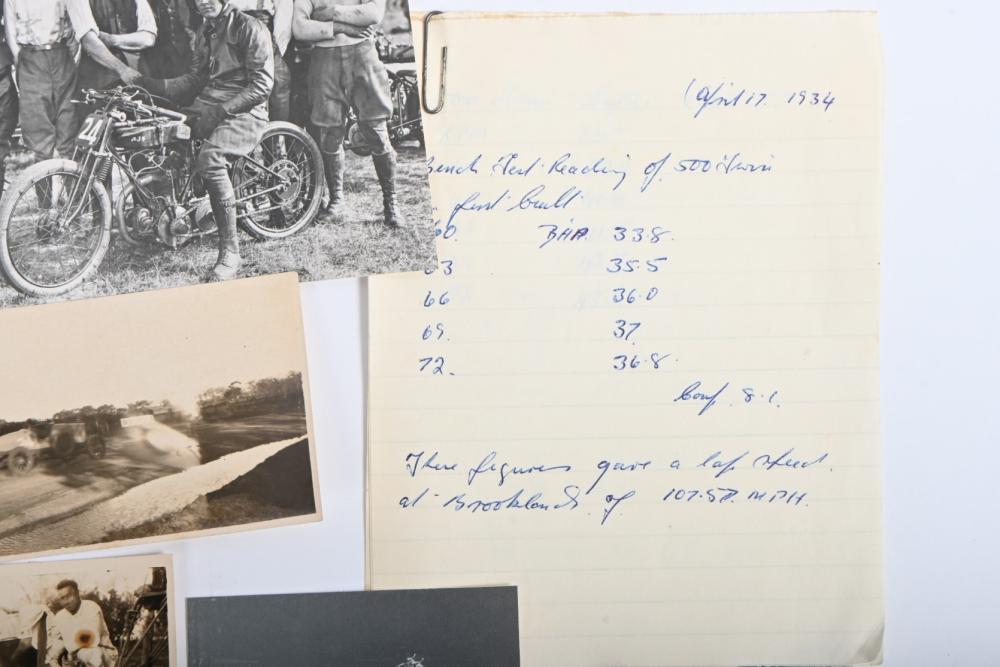 24
AJS
(April 17. 1934
Bench Test Reading of 500 Twin
first built
60. BHP. 33.8.
63 35.5
66 36.0
69. 37.
72. 36.8.
Comp. 8.1.
These figures gave a lap speed.
at Brooklands of 107.57. MPH.